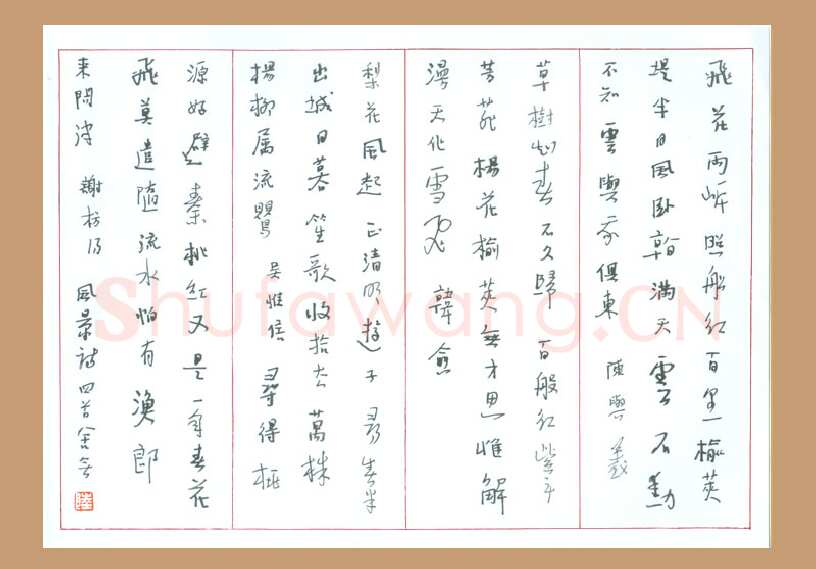 飛花兩岸照船紅百里榆莢
堤半日風臥看滿天雲不動
不知雲與我俱東 陳與義
草樹知春不久歸百般紅紫斗
芳菲楊花榆莢無才思惟解
漫天化雪飛 韓愈
梨花風起正清明遊子尋春半
出城日暮笙歌收拾去萬株
楊柳属流鶯 吳惟信 尋得桃
源好避秦桃紅又是一年春花
飛莫遣隨流水怕有漁郎
来問津 謝枋得 風景詩四首
陸
Shufawang.CN